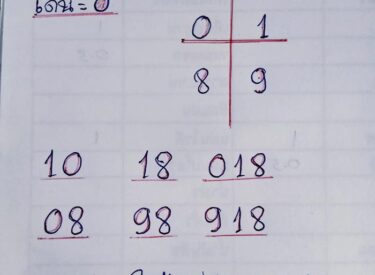 เด่น = 0
0 1
8 9
10 18 018
08 98 918